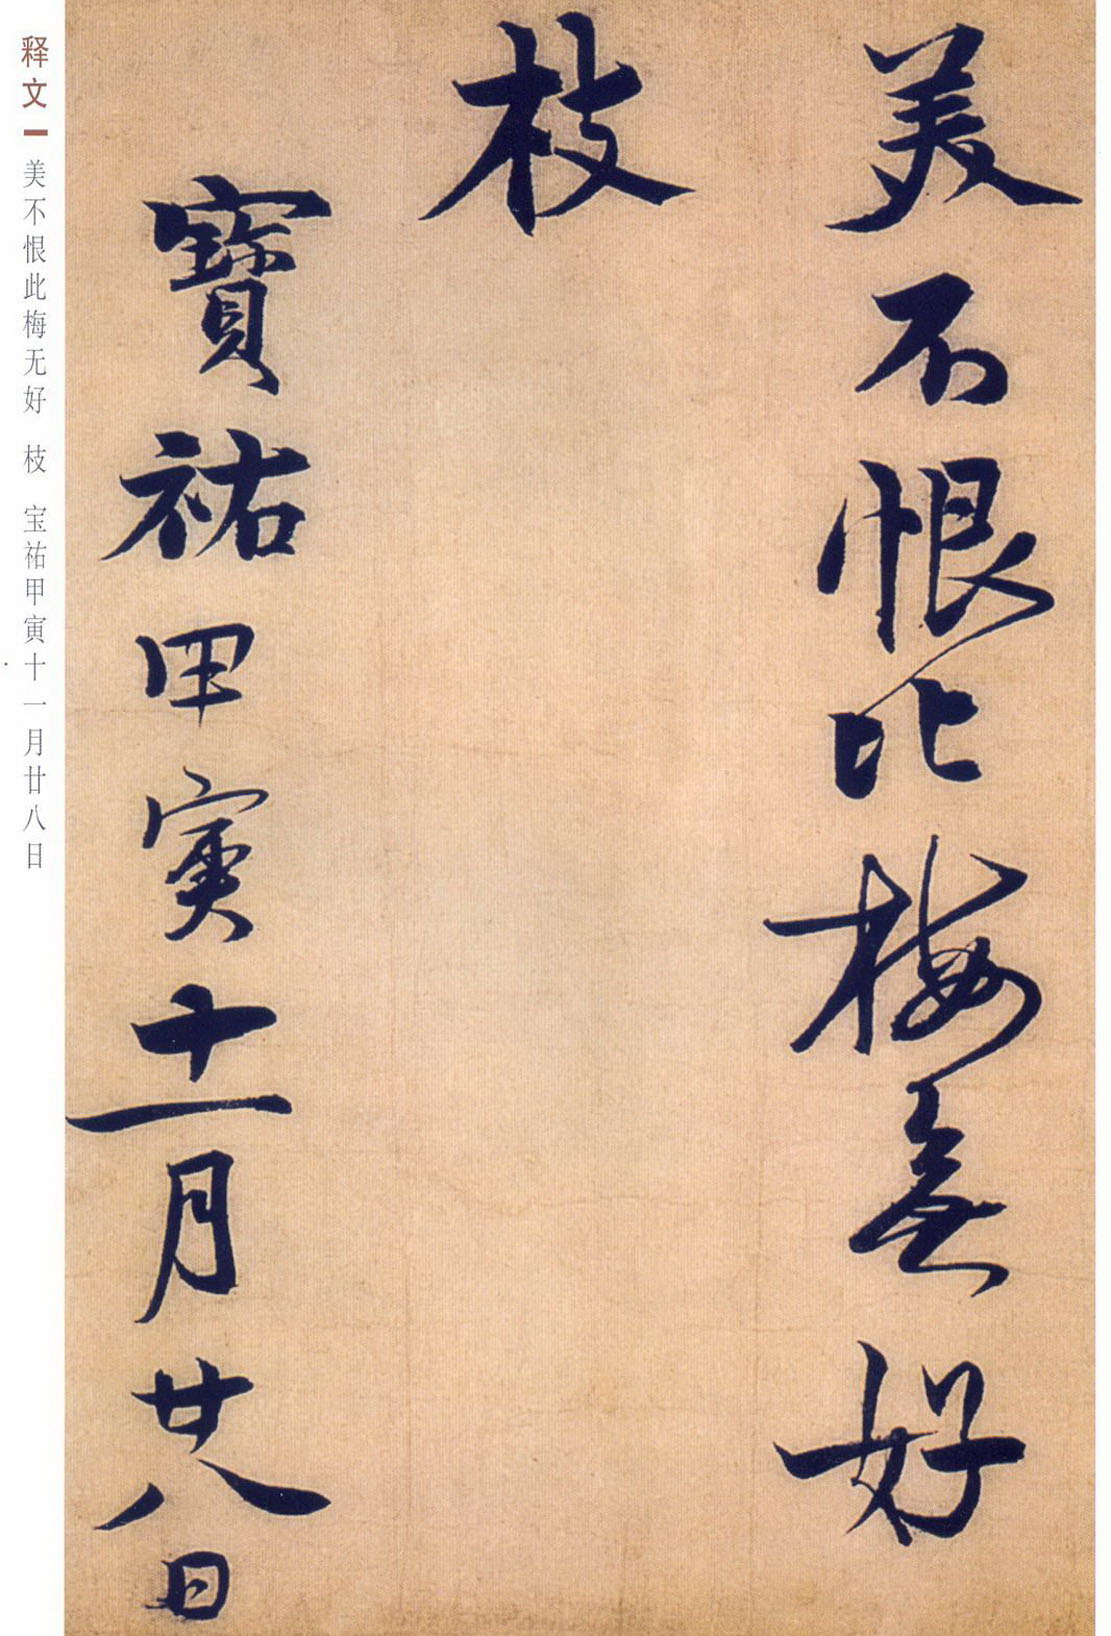 美不恨比梅無好
枝
寶祐甲寅十一月廿八日
释文 美不恨此梅无好 枝 宝祐甲寅十一月廿八日